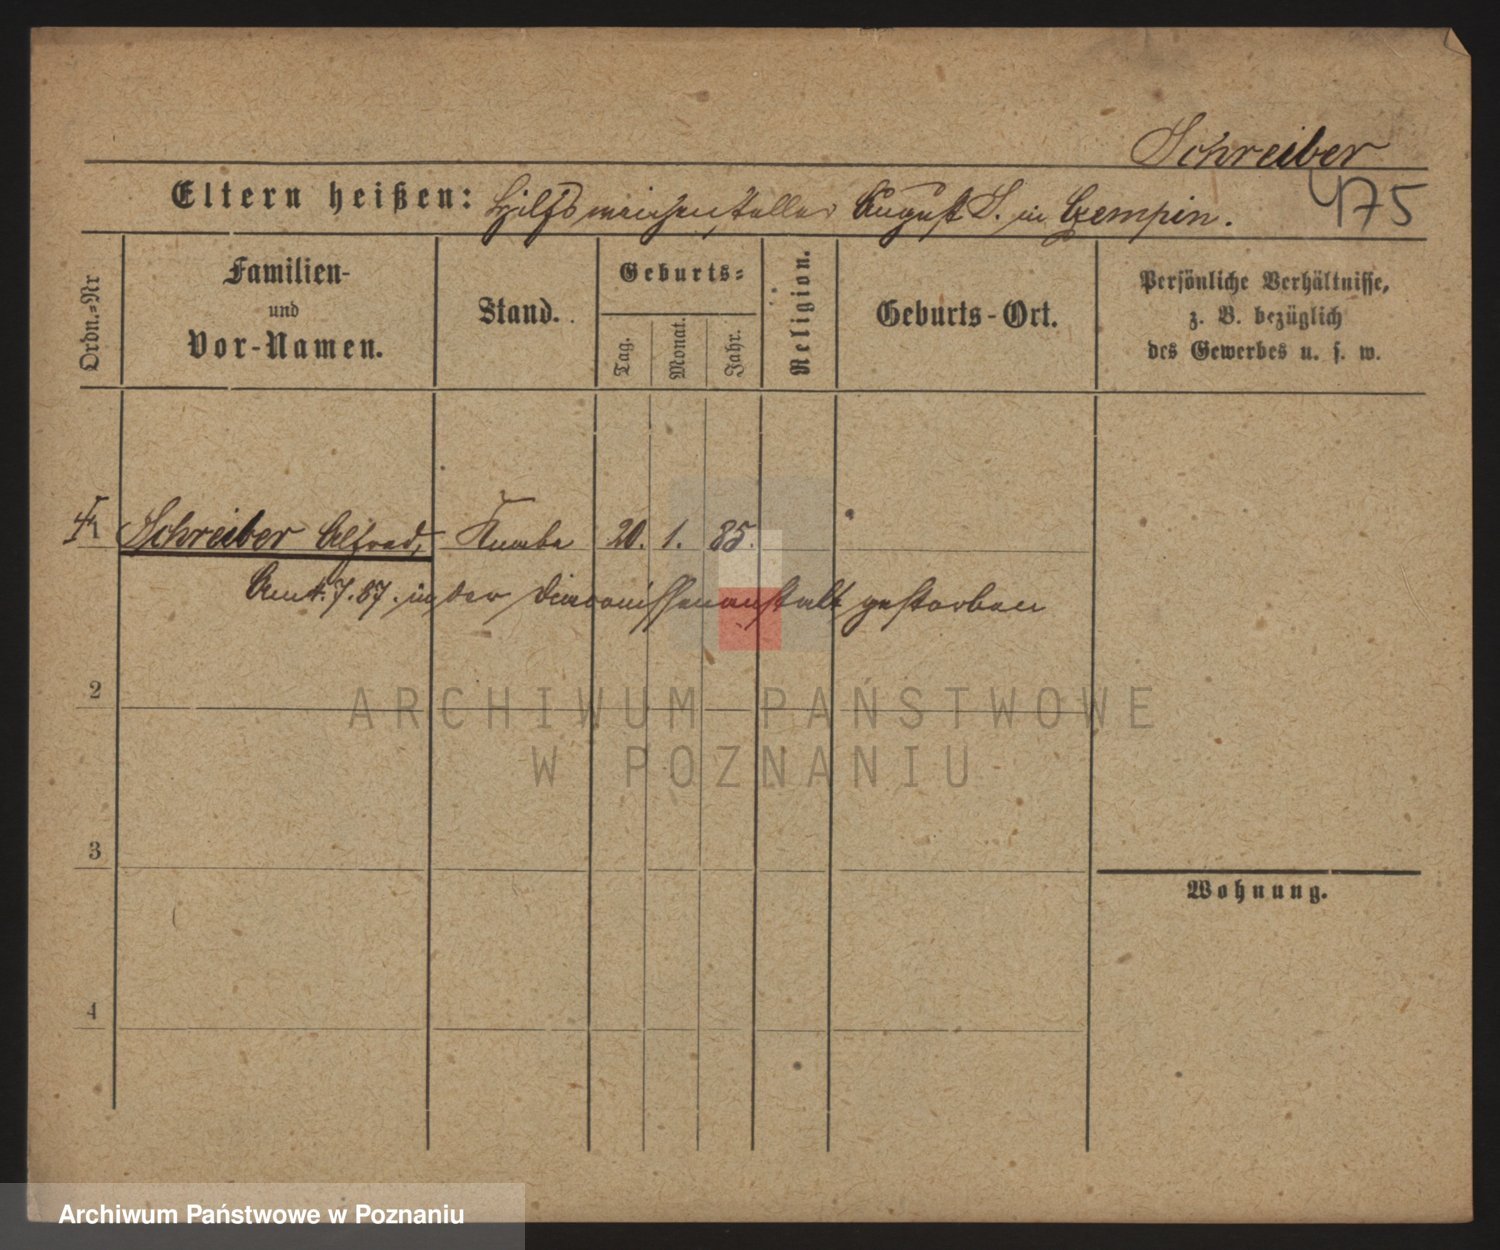 Schreiber
Eltern heißen: Hilfsweichensteller August S. in Czempin.
475
Ordn.=Nr
Familien-
und
Vor-Namen.
Stand.
Geburts=
Tag.
Monat.
Jahr.
Religion.
Geburts-Ort.
Persönliche Verhältnisse,
z. B. bezüglich
des Gewerbes u. s. w.
1 Schreiber Alfred, Knabe 20. 1. 85.
7.87. in der Diaconissenanstalt gestorben
2
3
4
Wohnung.
ARCHIWUM PAŃSTWOWE
W POZNANIU
Archiwum Państwowe w Poznaniu